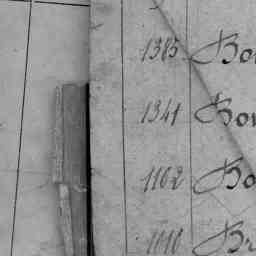 1385 Bo
1341 Bon
1102 Bo
1116 Br